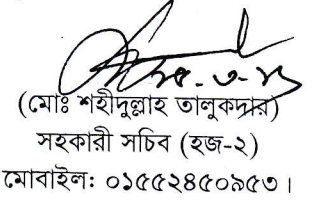 (মোঃ শহীদুল্লাহ তালুকদার)
সহকারী সচিব (হজ-২)
মোবাইলঃ ০১৫৫২৪৫০৯৫৩।